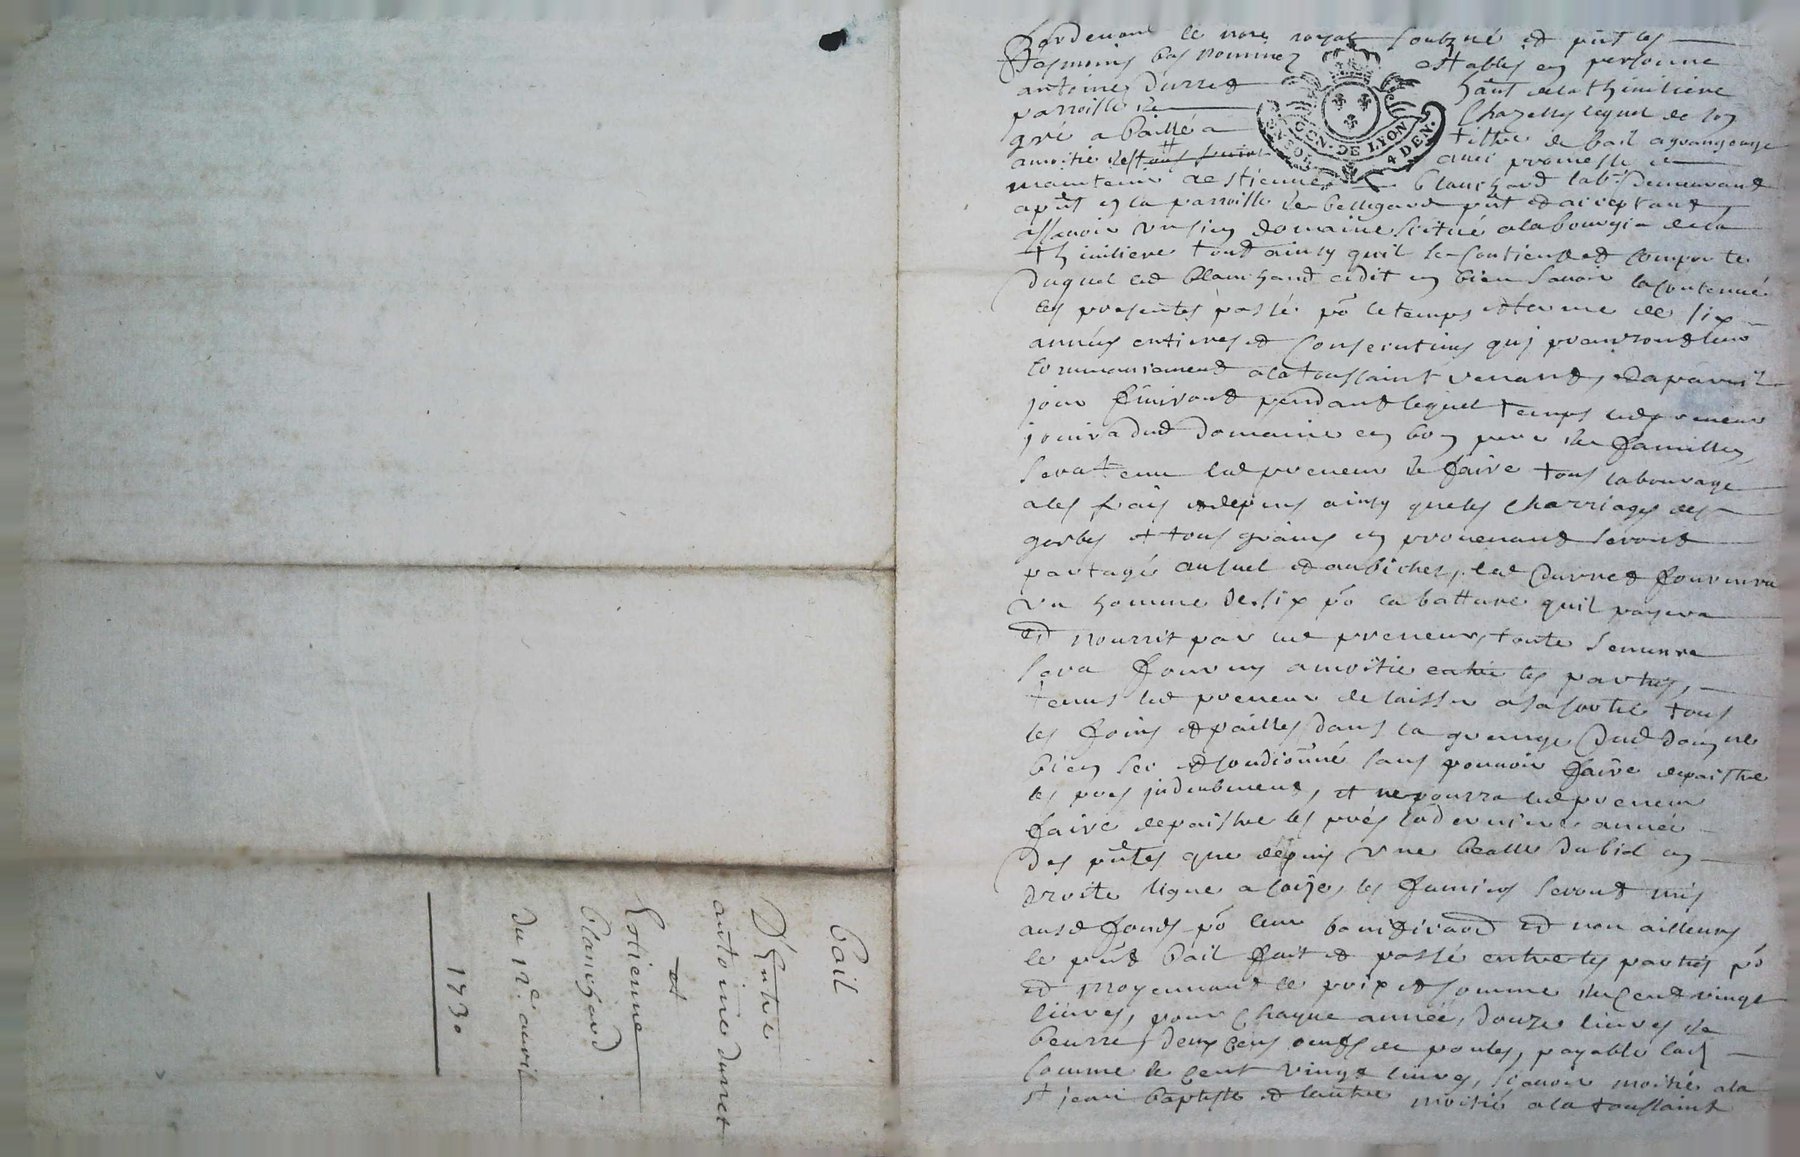 Pardevant le nore royal soubzné et pnt les
tesmoins bas nommez establys en personne
antoine Durret hant de la thiniliere
parroisse de Chazelle lequel de son
gré a baillé a tiltre de bail a grangeage
a moitié avec promesse de
maintenir a estienne blanchard lab. demeurant
apnt en la parroisse de bellegarde pnt et acceptant
assavoir un sien domaine scitué a la bourgia de la
thiniliere tout ainsy quil se contient et comporte
duquel led blanchard a dit en bien savoir la contenue
les presentes passé po le temps et terme de six
années entieres et consecutives qui prendront leur
commancement a la toussaint venant, et a pareil
jour finiront pendant lequel temps led preneur
jouira dud domaine en bon pere de famille,
sera tenu led preneur de faire tous labourage
a ses frais et depens ainsy que les charriages des
gerbes et tous grains en provenant seront
partagé au suel et au bichet, led Durret fournira
un homme de six po la batture quil payera
et nourrit par led preneur, toute semence
sera fourny a moitié entre les parties,
tenus led preneur de laisser a sa sortie tous
les foins et pailles dans la grange dud domne
bien sec et conditionné sans pouvoir faire depaistre
les prés induebment, et ne pourra led preneur
faire depaistre les prés la derniere année
des pntes que depuis une
droite ligne les fumiers seront mis
aux d fonds po leur bonifier et non ailleurs
le pnt bail fait et passé entre les parties po
et moyennant le prix et somme de cent vingt
livres, pour chaque année, douze livres de
beurre, deux cens oeufs de poules, payable lad
somme de cent vingt livres, scavoir moitié a la
st jean baptiste et lautre moitié a la toussaint
GEN. DE LYON
4 DEN.
bail
D'Entre
antoine durret
et
Estienne
blanchard
du 12e. avril
1730